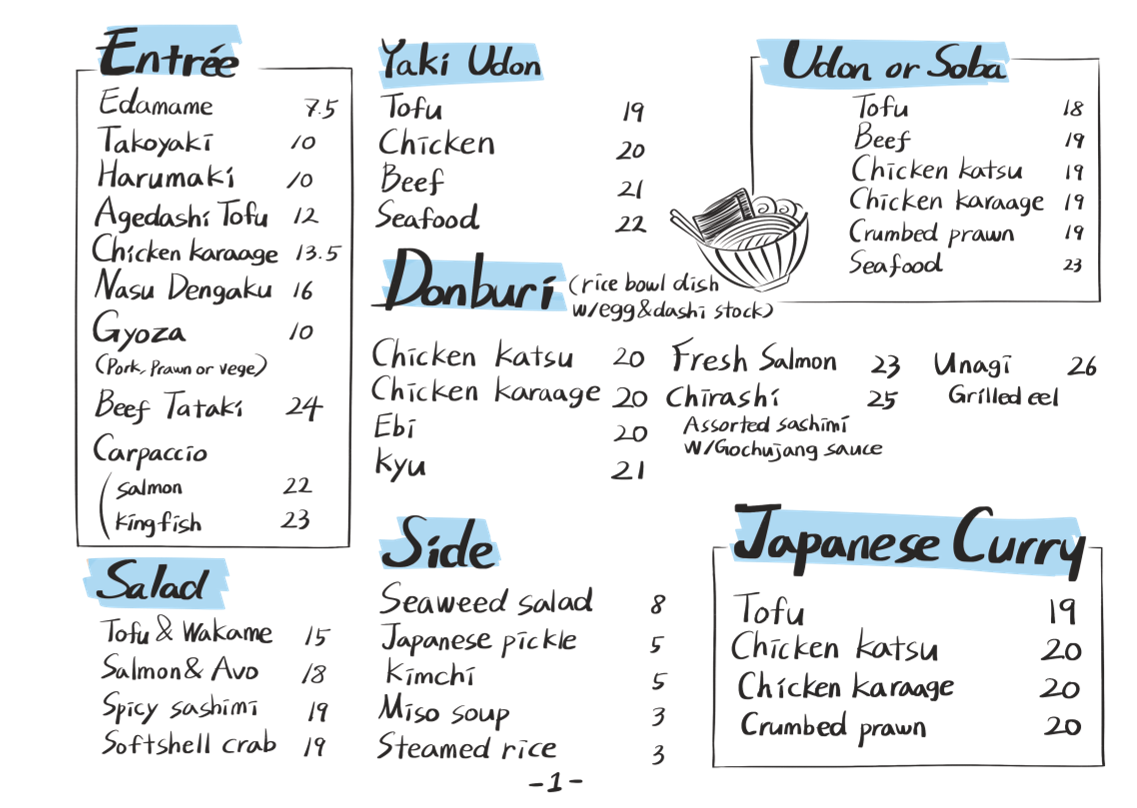 Entrée
Edamame 7.5
Takoyaki 10
Harumaki 10
Agedashi Tofu 12
Chicken karaage 13.5
Nasu Dengaku 16
Gyoza 10
(Pork, Prawn or vege)
Beef Tataki 24
Carpaccio
(salmon 22
kingfish 23
Salad
Tofu & Wakame 15
Salmon & Avo 18
Spicy sashimi 19
Softshell crab 19
Yaki Udon
Tofu 19
Chicken 20
Beef 21
Seafood 22
Udon or Soba
Tofu 18
Beef 19
Chicken katsu 19
Chicken karaage 19
Crumbed prawn 19
Seafood 23
Donburi (rice bowl dish
w/egg & dashi stock)
Chicken katsu 20
Chicken karaage 20
Ebi 20
Kyu 21
Fresh Salmon 23
Chirashi 25
Assorted sashimi
W/Gochujang sauce
Unagi 26
Grilled eel
Side
Seaweed salad 8
Japanese pickle 5
Kimchi 5
Miso soup 3
Steamed rice 3
Japanese Curry
Tofu 19
Chicken katsu 20
Chicken karaage 20
Crumbed prawn 20
-1-